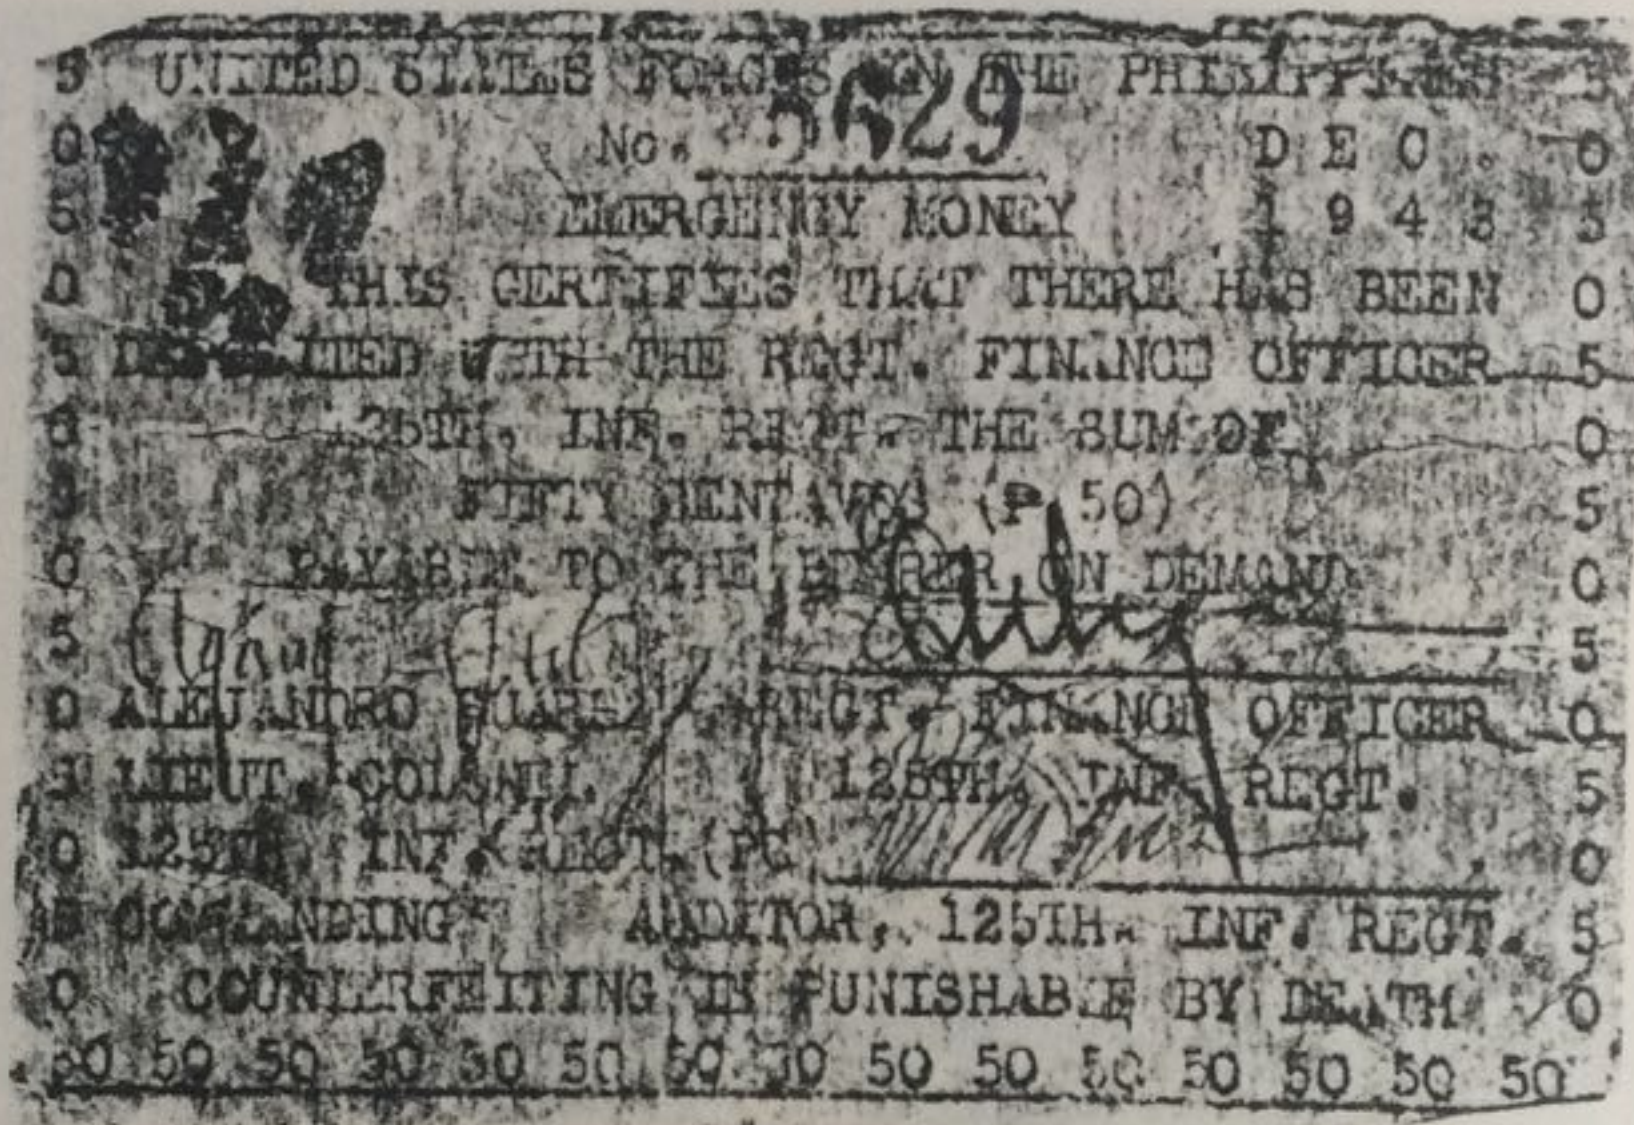 5 UNITED STATES FORCES IN THE PHILIPPINES 5
0 No. 5629 D E C . 0
5 EMERGENCY MONEY 1 9 4 3 5
0 THIS CERTIFIES THAT THERE HAS BEEN 0
5 DEPOSITED WITH THE REGT. FINANCE OFFICER 5
0 125TH. INF. REGT. THE SUM OF 0
5 FIFTY CENTAVOS (₱ 50) 5
0 PAYABLE TO THE BEARER ON DEMAND 0
5 5
0 ALEJANDRO REGT. FINANCE OFFICER 0
5 LIEUT. COLONEL 125TH. INF. REGT. 5
0 125TH INF. REGT. (PC 0
5 COMMANDING AUDITOR, 125TH. INF. REGT. 5
0 COUNTERFEITING IS PUNISHABLE BY DEATH 0
50 50 50 50 50 50 50 50 50 50 50 50 50 50 50